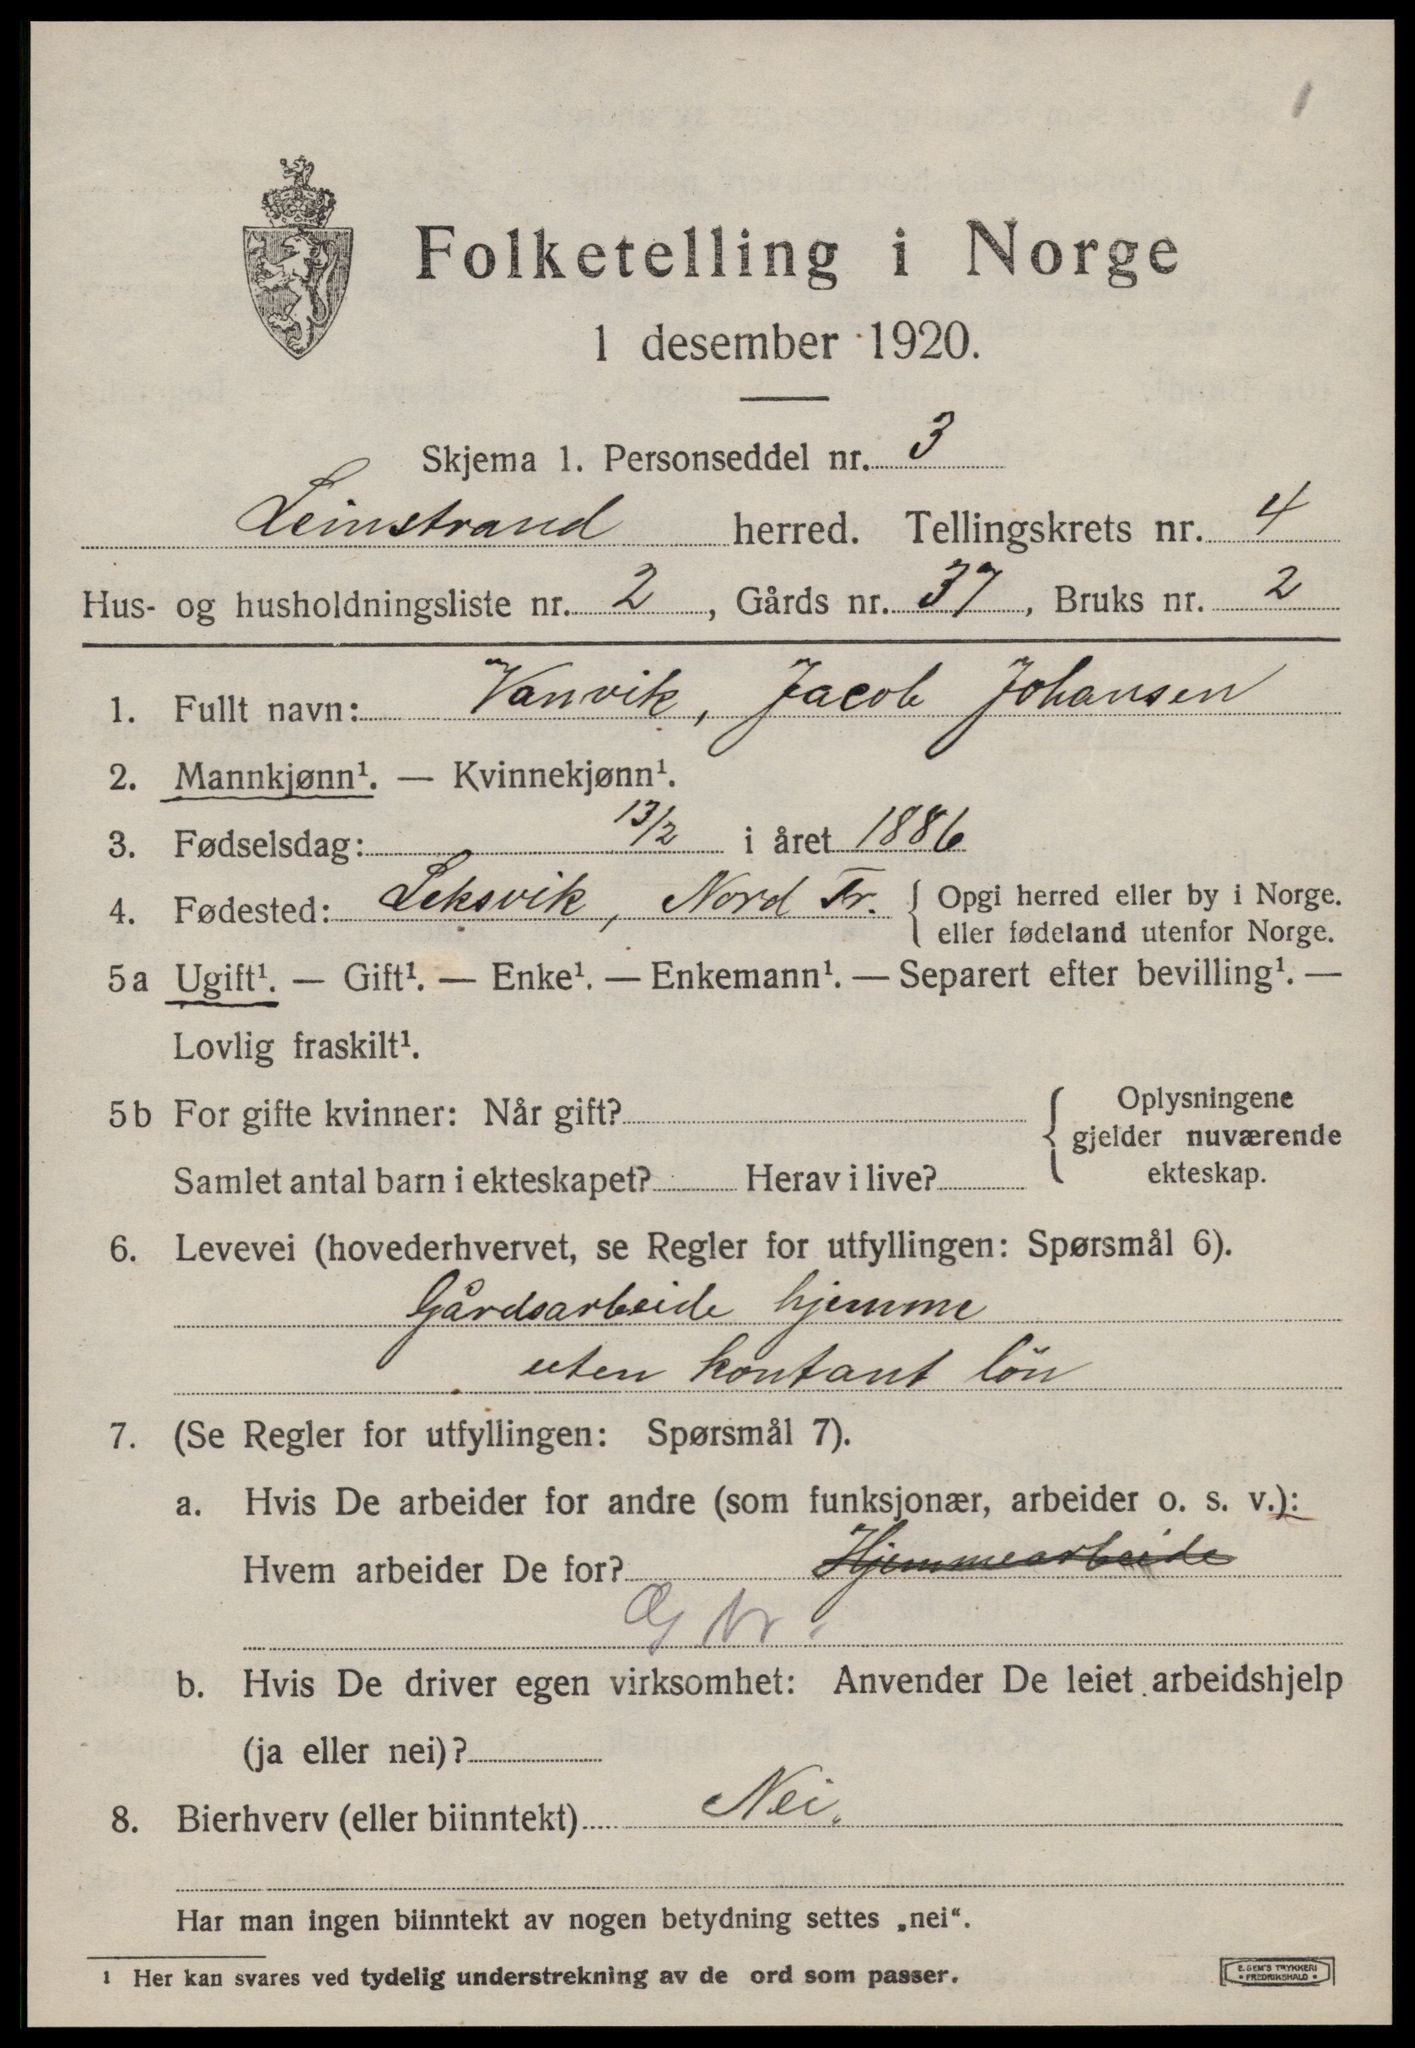 1
Folketelling i Norge
1 desember 1920.
Skjema 1. Personseddel nr. 3
Leinstrand herred. Tellingskrets nr. 4
Hus- og husholdningsliste nr. 2, Gårds nr. 37, Bruks nr. 2
1. Fullt navn: Vanvik, Jacob Johansen
2. Mannkjønn¹. — Kvinnekjønn¹.
3. Fødselsdag: 13/2 i året 1886
4. Fødested: Leksvik, Nord Tr. { Opgi herred eller by i Norge.
eller fødeland utenfor Norge.
5a Ugift¹. — Gift¹. — Enke¹. — Enkemann¹. — Separert efter bevilling¹. —
Lovlig fraskilt¹.
5b For gifte kvinner: Når gift? { Oplysningene
gjelder nuværende
ekteskap.
Samlet antal barn i ekteskapet? Herav i live?
6. Levevei (hovederhvervet, se Regler for utfyllingen: Spørsmål 6).
Gårdsarbeide hjemme
uten kontant lön
7. (Se Regler for utfyllingen: Spørsmål 7).
a. Hvis De arbeider for andre (som funksjonær, arbeider o. s. v.):
Hvem arbeider De for? Hjemmearbeide
b. Hvis De driver egen virksomhet: Anvender De leiet arbeidshjelp
(ja eller nei)?
8. Bierhverv (eller biinntekt) Nei.
Har man ingen biinntekt av nogen betydning settes „nei“.
1 Her kan svares ved tydelig understrekning av de ord som passer.
E. SEM'S TRYKKERI
• FREDRIKSHALD •